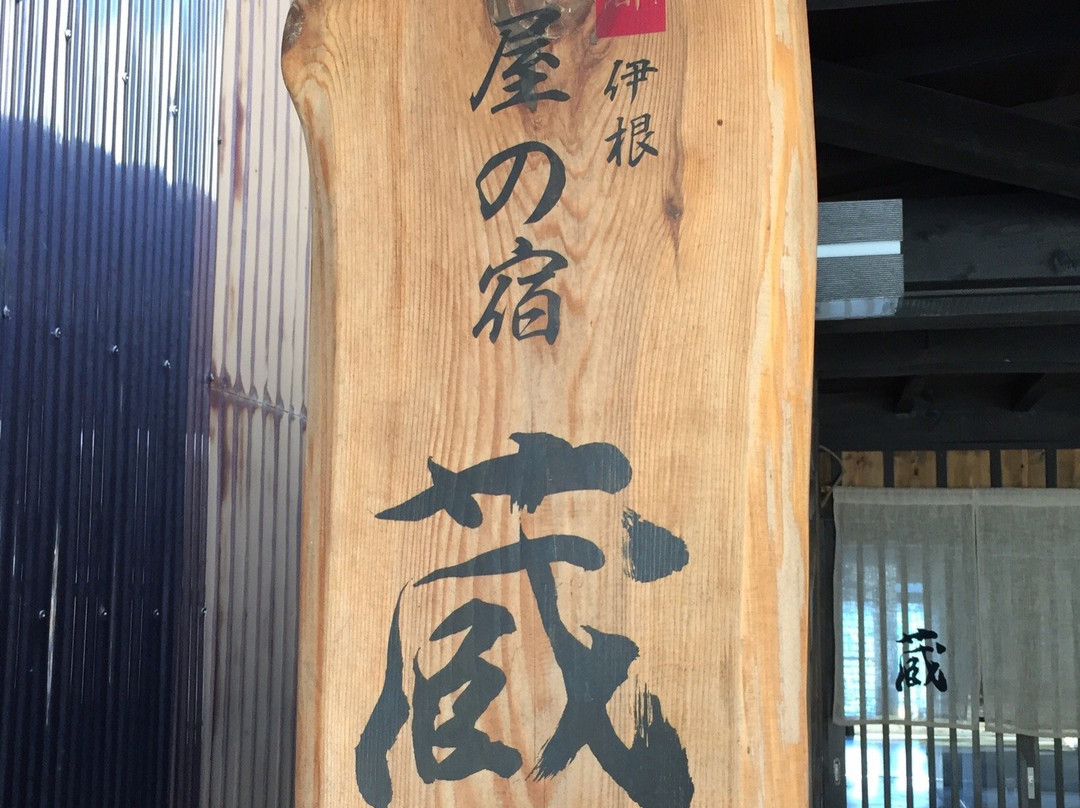 伊根
屋の宿
蔵
蔵